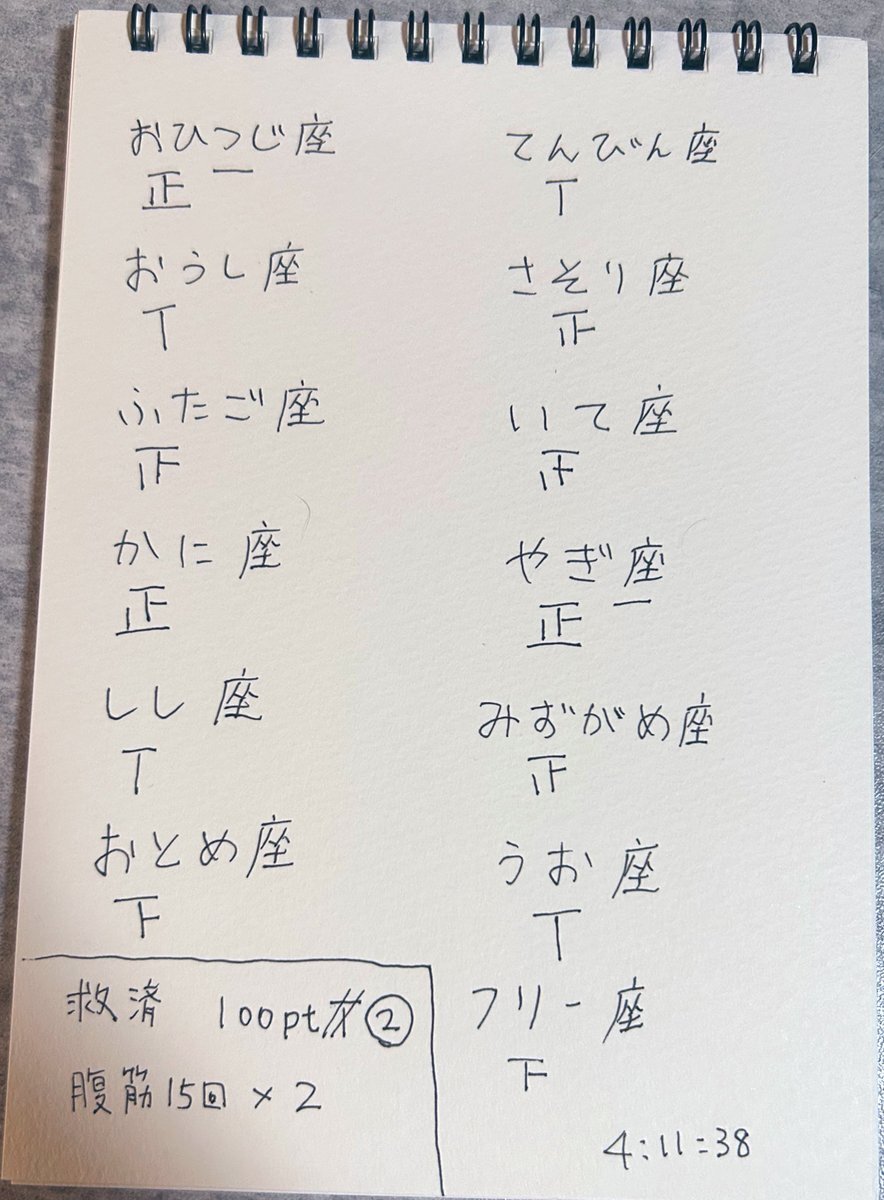 おひつじ座
正一
おうし座
丅
ふたご座
𝍵
かに座
正
しし座
丅
おとめ座
下
救済 100pt ②
腹筋15回×2
てんびん座
丅
さそり座
正
いて座
正
やぎ座
正一
みずがめ座
うお座
丅
フリー座
下
4:11:38